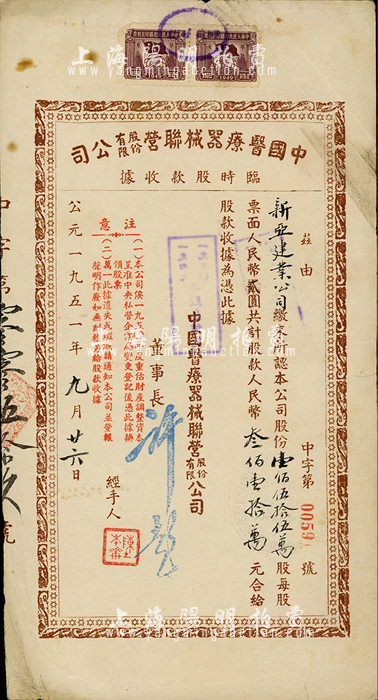 上海陽明拍賣
mingauction.com
1949
1949
中國醫療器械聯營股份有限公司
臨時股款收據
茲由
新亞建業公司繳來認認本公司股份壹佰伍拾伍萬股每股
票面人民幣貳圓共計股款人民幣叁佰壹拾萬元合給
股款收據為憑此據
中字第0059號
中國醫療器械聯營股份有限公司
董事長
經手人
注意
(一)本公司俟一九五〇年度重估財產調整資本
呈准中央私營企業局變更登記後憑此據換
領股票
(二)萬一此據遺失或破滅請通知本公司並登報
聲明作廢如無糾葛另給股款收據
公元一九五一年九月廿六日
上海陽明拍賣